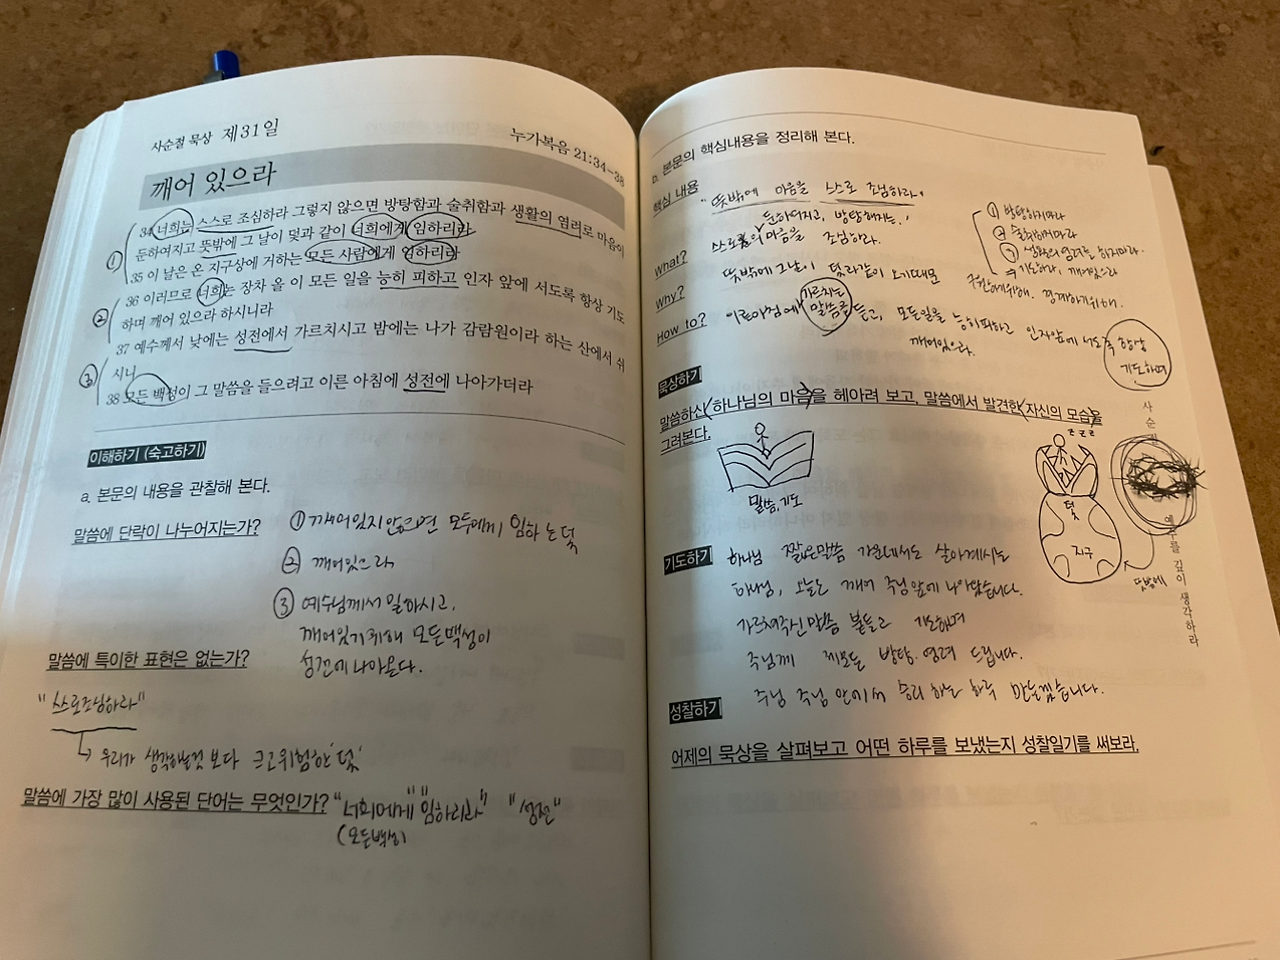 사순절 묵상 제31일
누가복음 21:34-38
깨어 있으라
34 너희는 스스로 조심하라 그렇지 않으면 방탕함과 술취함과 생활의 염려로 마음이
둔하여지고 뜻밖에 그 날이 덫과 같이 너희에게 임하리라
35 이 날은 온 지구상에 거하는 모든 사람에게 임하리라
36 이러므로 너희는 장차 올 이 모든 일을 능히 피하고 인자 앞에 서도록 항상 기도
하며 깨어 있으라 하시니라
37 예수께서 낮에는 성전에서 가르치시고 밤에는 나가 감람원이라 하는 산에서 쉬
시니
38 모든 백성이 그 말씀을 들으려고 이른 아침에 성전에 나아가더라
①
②
③
이해하기 (숙고하기)
a. 본문의 내용을 관찰해 본다.
말씀에 단락이 나누어지는가?
① 깨어있지 않으면 모두에게 임하는 덫
② 깨어있으라
③ 예수님께서 일하시고,
깨어있기 위해 모든백성이
성전에 나아온다.
말씀에 특이한 표현은 없는가?
"스스로조심하라"
↳ 우리가 생각하는것 보다 크고위험한 '덫'
말씀에 가장 많이 사용된 단어는 무엇인가? "너희에게" "임하리라" "성전"
(모든백성)
b. 본문의 핵심내용을 정리해 본다.
핵심 내용
"뜻밖에 마음을 스스로 조심하라.
둔하여지고, 방탕해지는,
what? 스스로의 마음을 조심하라.
① 방탕하지마라
② 술취하지마라
③ 생활의 염려를 하지마라.
⇒ 기도하라, 깨어있으라
why? 뜻밖에 그날이 덫과같이 오기때문
구원하기위해. 경계하기위해.
How to? 이른아침에 가르치는 말씀을 듣고, 모든일을 능히피하고 인자앞에 서도록 항상 기도하며
깨어있으라.
묵상하기
말씀하신 하나님의 마음을 헤아려 보고, 말씀에서 발견한 자신의 모습을
그려본다.
말씀, 기도
z z z
덫
지구
뜻밖에
예수를 깊이 생각하라
기도하기
하나님 짧은말씀 가운데서도 살아계시는
하나님, 오늘도 깨어 주님앞에 나아갔습니다.
가르쳐주신 말씀 붙들고 기도하며
주님께 제모든 방탕, 염려 드립니다.
주님 주님 안에서 승리하는 하루 만들겠습니다.
성찰하기
어제의 묵상을 살펴보고 어떤 하루를 보냈는지 성찰일기를 써보라.